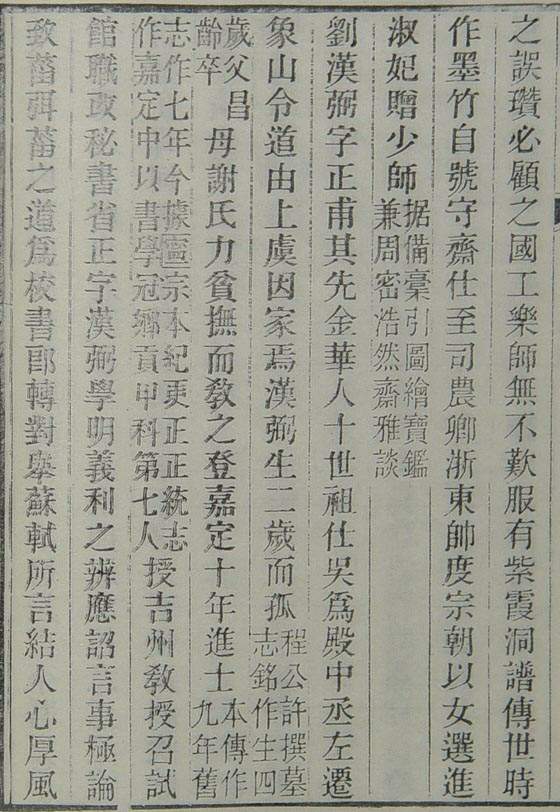 之誤瓚必顧之國工樂師無不歎服有紫霞洞譜傳世時
作墨竹自號守齋仕至司農卿浙東帥度宗朝以女選進
淑妃贈少師据備藁引圖繪寶鑑兼周密浩然齋雅談
劉漢弼字正甫其先金華人十世祖仕吳爲殿中丞左遷
象山令道由上虞因家焉漢弼生二歲而孤程公許撰墓志銘作生四
歲父昌齡卒母謝氏力貧撫而教之登嘉定十年進士本傳作九年舊
志作七年今據寧宗本紀更正正統志作嘉定中以書學冠鄉貢甲科第七人授吉州教授召試
館職改秘書省正字漢弼學明義利之辨應詔言事極論
致菑弭菑之道爲校書郎轉對舉蘇軾所言結人心厚風